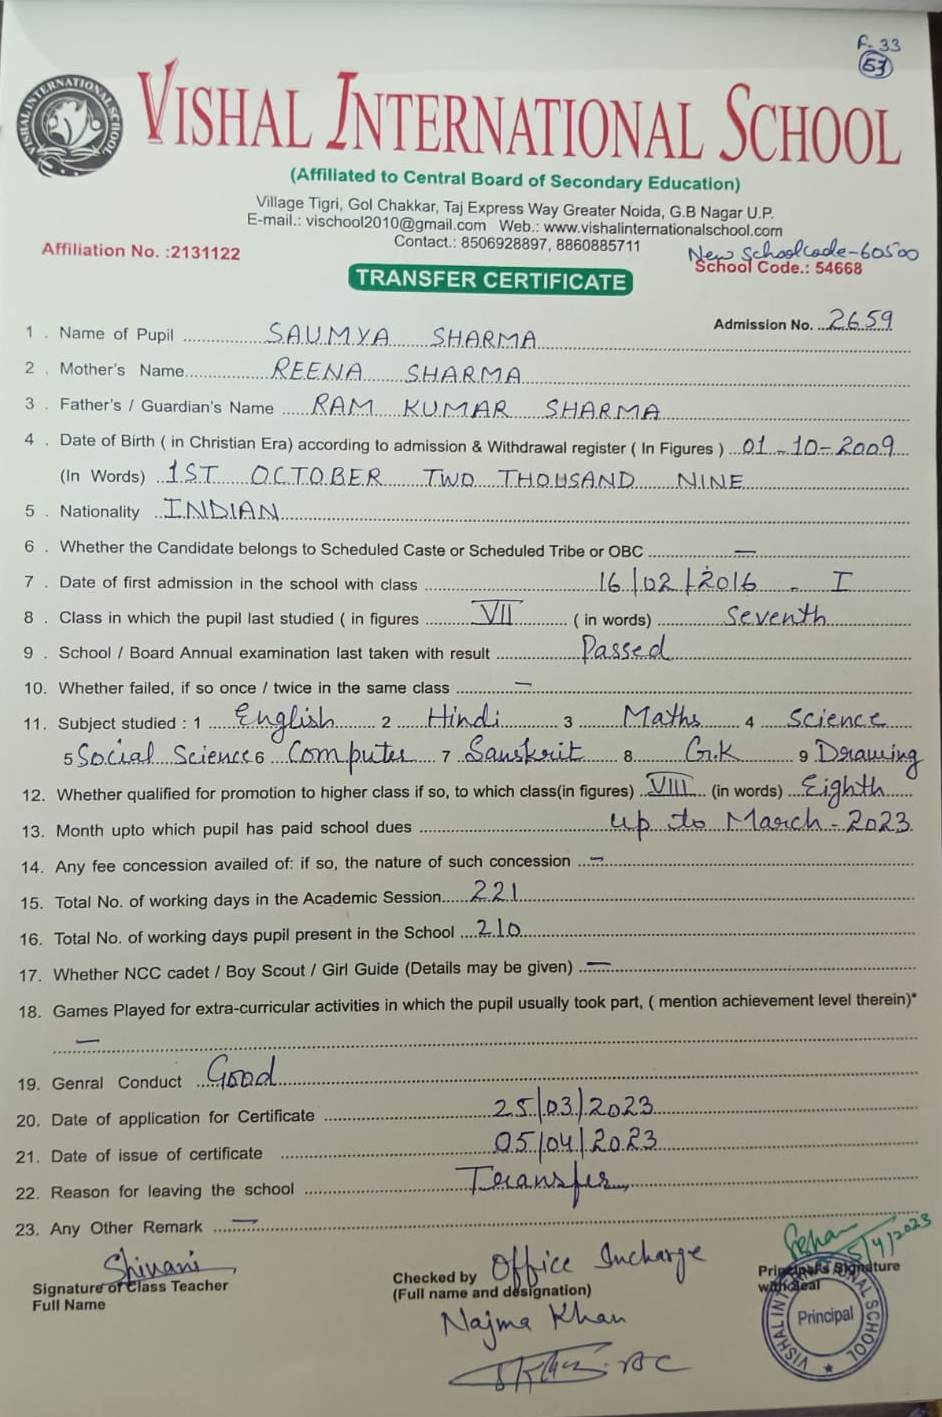 R-33
53
VISHAL INTERNATIONAL SCHOOL
(Affiliated to Central Board of Secondary Education)
Village Tigri, Gol Chakkar, Taj Express Way Greater Noida, G.B Nagar U.P.
E-mail.: vischool2010@gmail.com Web.: www.vishalinternationalschool.com
Contact.: 8506928897, 8860885711
New School Code-60500
Affiliation No. :2131122
School Code.: 54668
TRANSFER CERTIFICATE
Admission No. 2659
1 . Name of Pupil SAUMYA SHARMA
2 . Mother's Name REENA SHARMA
3 . Father's / Guardian's Name RAM KUMAR SHARMA
4 . Date of Birth ( in Christian Era) according to admission & Withdrawal register ( In Figures ) 01-10-2009
(In Words) 1ST OCTOBER TWO THOUSAND NINE
5 . Nationality INDIAN
6 . Whether the Candidate belongs to Scheduled Caste or Scheduled Tribe or OBC =
7 . Date of first admission in the school with class 16/02/2016 - I
8 . Class in which the pupil last studied ( in figures VII ( in words) Seventh
9 . School / Board Annual examination last taken with result Passed
10. Whether failed, if so once / twice in the same class —
11. Subject studied : 1 English 2 Hindi 3 Maths 4 Science
5 Social Science 6 Computer 7 Sanskrit 8 G.K 9 Drawing
12. Whether qualified for promotion to higher class if so, to which class(in figures) VIII (in words) Eighth
13. Month upto which pupil has paid school dues up to March-2023
14. Any fee concession availed of: if so, the nature of such concession —
15. Total No. of working days in the Academic Session 221
16. Total No. of working days pupil present in the School 210
17. Whether NCC cadet / Boy Scout / Girl Guide (Details may be given) —
18. Games Played for extra-curricular activities in which the pupil usually took part, ( mention achievement level therein)*
—
19. Genral Conduct Good
20. Date of application for Certificate 25/03/2023
21. Date of issue of certificate 05/04/2023
22. Reason for leaving the school Transfer
23. Any Other Remark —
Shivani
Signature of Class Teacher
Full Name
Checked by Office Incharge
(Full name and designation)
Najma Khan
5/4/2023
Principal's Signature
with Seal
VISHAL INTERNATIONAL SCHOOL
Principal
VISHAL INTERNATIONAL SCHOOL